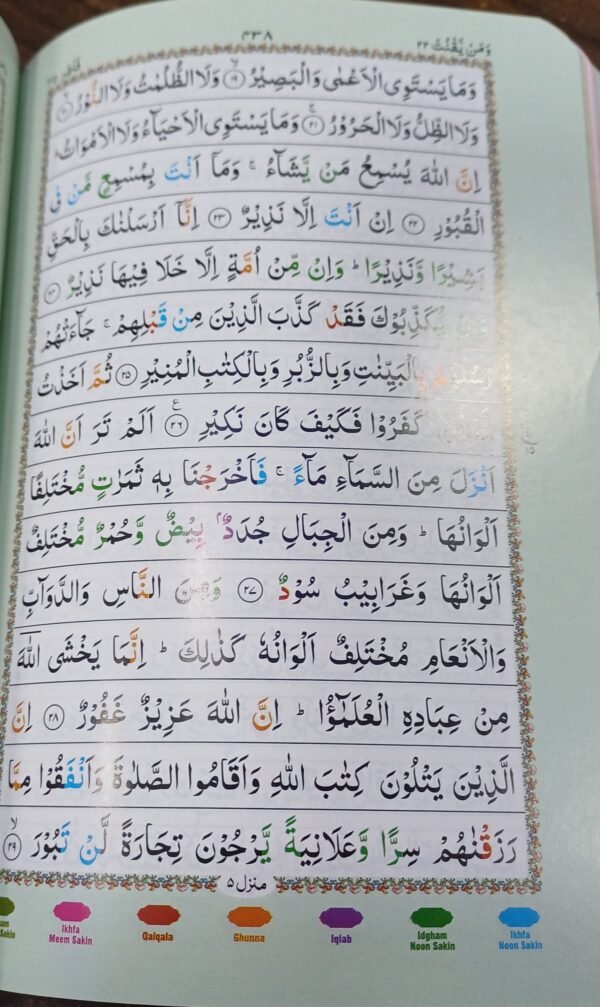 وَمَنْ يَّقْنُتْ ٢٢
٤٣٨
فَاطِر ٣٥
وَمَا يَسْتَوِى الْاَعْمٰى وَالْبَصِيْرُ ۙ﴿۱۹﴾ وَلَا الظُّلُمٰتُ وَلَا النُّوْرُ ۙ﴿۲۰﴾
وَلَا الظِّلُّ وَلَا الْحَرُوْرُ ۚ﴿۲۱﴾ وَمَا يَسْتَوِى الْاَحْيَآءُ وَلَا الْاَمْوَاتُ ؕ
اِنَّ اللّٰهَ يُسْمِعُ مَنْ يَّشَآءُ ۚ وَمَاۤ اَنْتَ بِمُسْمِعٍ مَّنْ فِى
الْقُبُوْرِ ﴿۲۲﴾ اِنْ اَنْتَ اِلَّا نَذِيْرٌ ﴿۲۳﴾ اِنَّاۤ اَرْسَلْنٰكَ بِالْحَقِّ
بَشِيْرًا وَّنَذِيْرًا ؕ وَاِنْ مِّنْ اُمَّةٍ اِلَّا خَلَا فِيْهَا نَذِيْرٌ ﴿۲۴﴾
يُّكَذِّبُوْكَ فَقَدْ كَذَّبَ الَّذِيْنَ مِنْ قَبْلِهِمْ ۚ جَآءَتْهُمْ
رُسُلُهُمْ بِالْبَيِّنٰتِ وَبِالزُّبُرِ وَبِالْكِتٰبِ الْمُنِيْرِ ﴿۲۵﴾ ثُمَّ اَخَذْتُ
كَفَرُوْا فَكَيْفَ كَانَ نَكِيْرِ ﴿۲۶﴾ ع اَلَمْ تَرَ اَنَّ اللّٰهَ
اَنْزَلَ مِنَ السَّمَآءِ مَآءً ۚ فَاَخْرَجْنَا بِهٖ ثَمَرٰتٍ مُّخْتَلِفًا
اَلْوَانُهَا ؕ وَمِنَ الْجِبَالِ جُدَدٌۢ بِيْضٌ وَّحُمْرٌ مُّخْتَلِفٌ
اَلْوَانُهَا وَغَرَابِيْبُ سُوْدٌ ﴿۲۷﴾ وَمِنَ النَّاسِ وَالدَّوَآبِّ
وَالْاَنْعَامِ مُخْتَلِفٌ اَلْوَانُهٗ كَذٰلِكَ ؕ اِنَّمَا يَخْشَى اللّٰهَ
مِنْ عِبَادِهِ الْعُلَمٰٓؤُا ؕ اِنَّ اللّٰهَ عَزِيْزٌ غَفُوْرٌ ﴿۲۸﴾ اِنَّ
الَّذِيْنَ يَتْلُوْنَ كِتٰبَ اللّٰهِ وَاَقَامُوا الصَّلٰوةَ وَاَنْفَقُوْا مِمَّا
رَزَقْنٰهُمْ سِرًّا وَّعَلَانِيَةً يَّرْجُوْنَ تِجَارَةً لَّنْ تَبُوْرَ ۙ﴿۲۹﴾
منزل ٥
Ikhfa Meem Sakin
Qalqala
Ghunna
Iqlab
Idgham Noon Sakin
Ikhfa Noon Sakin